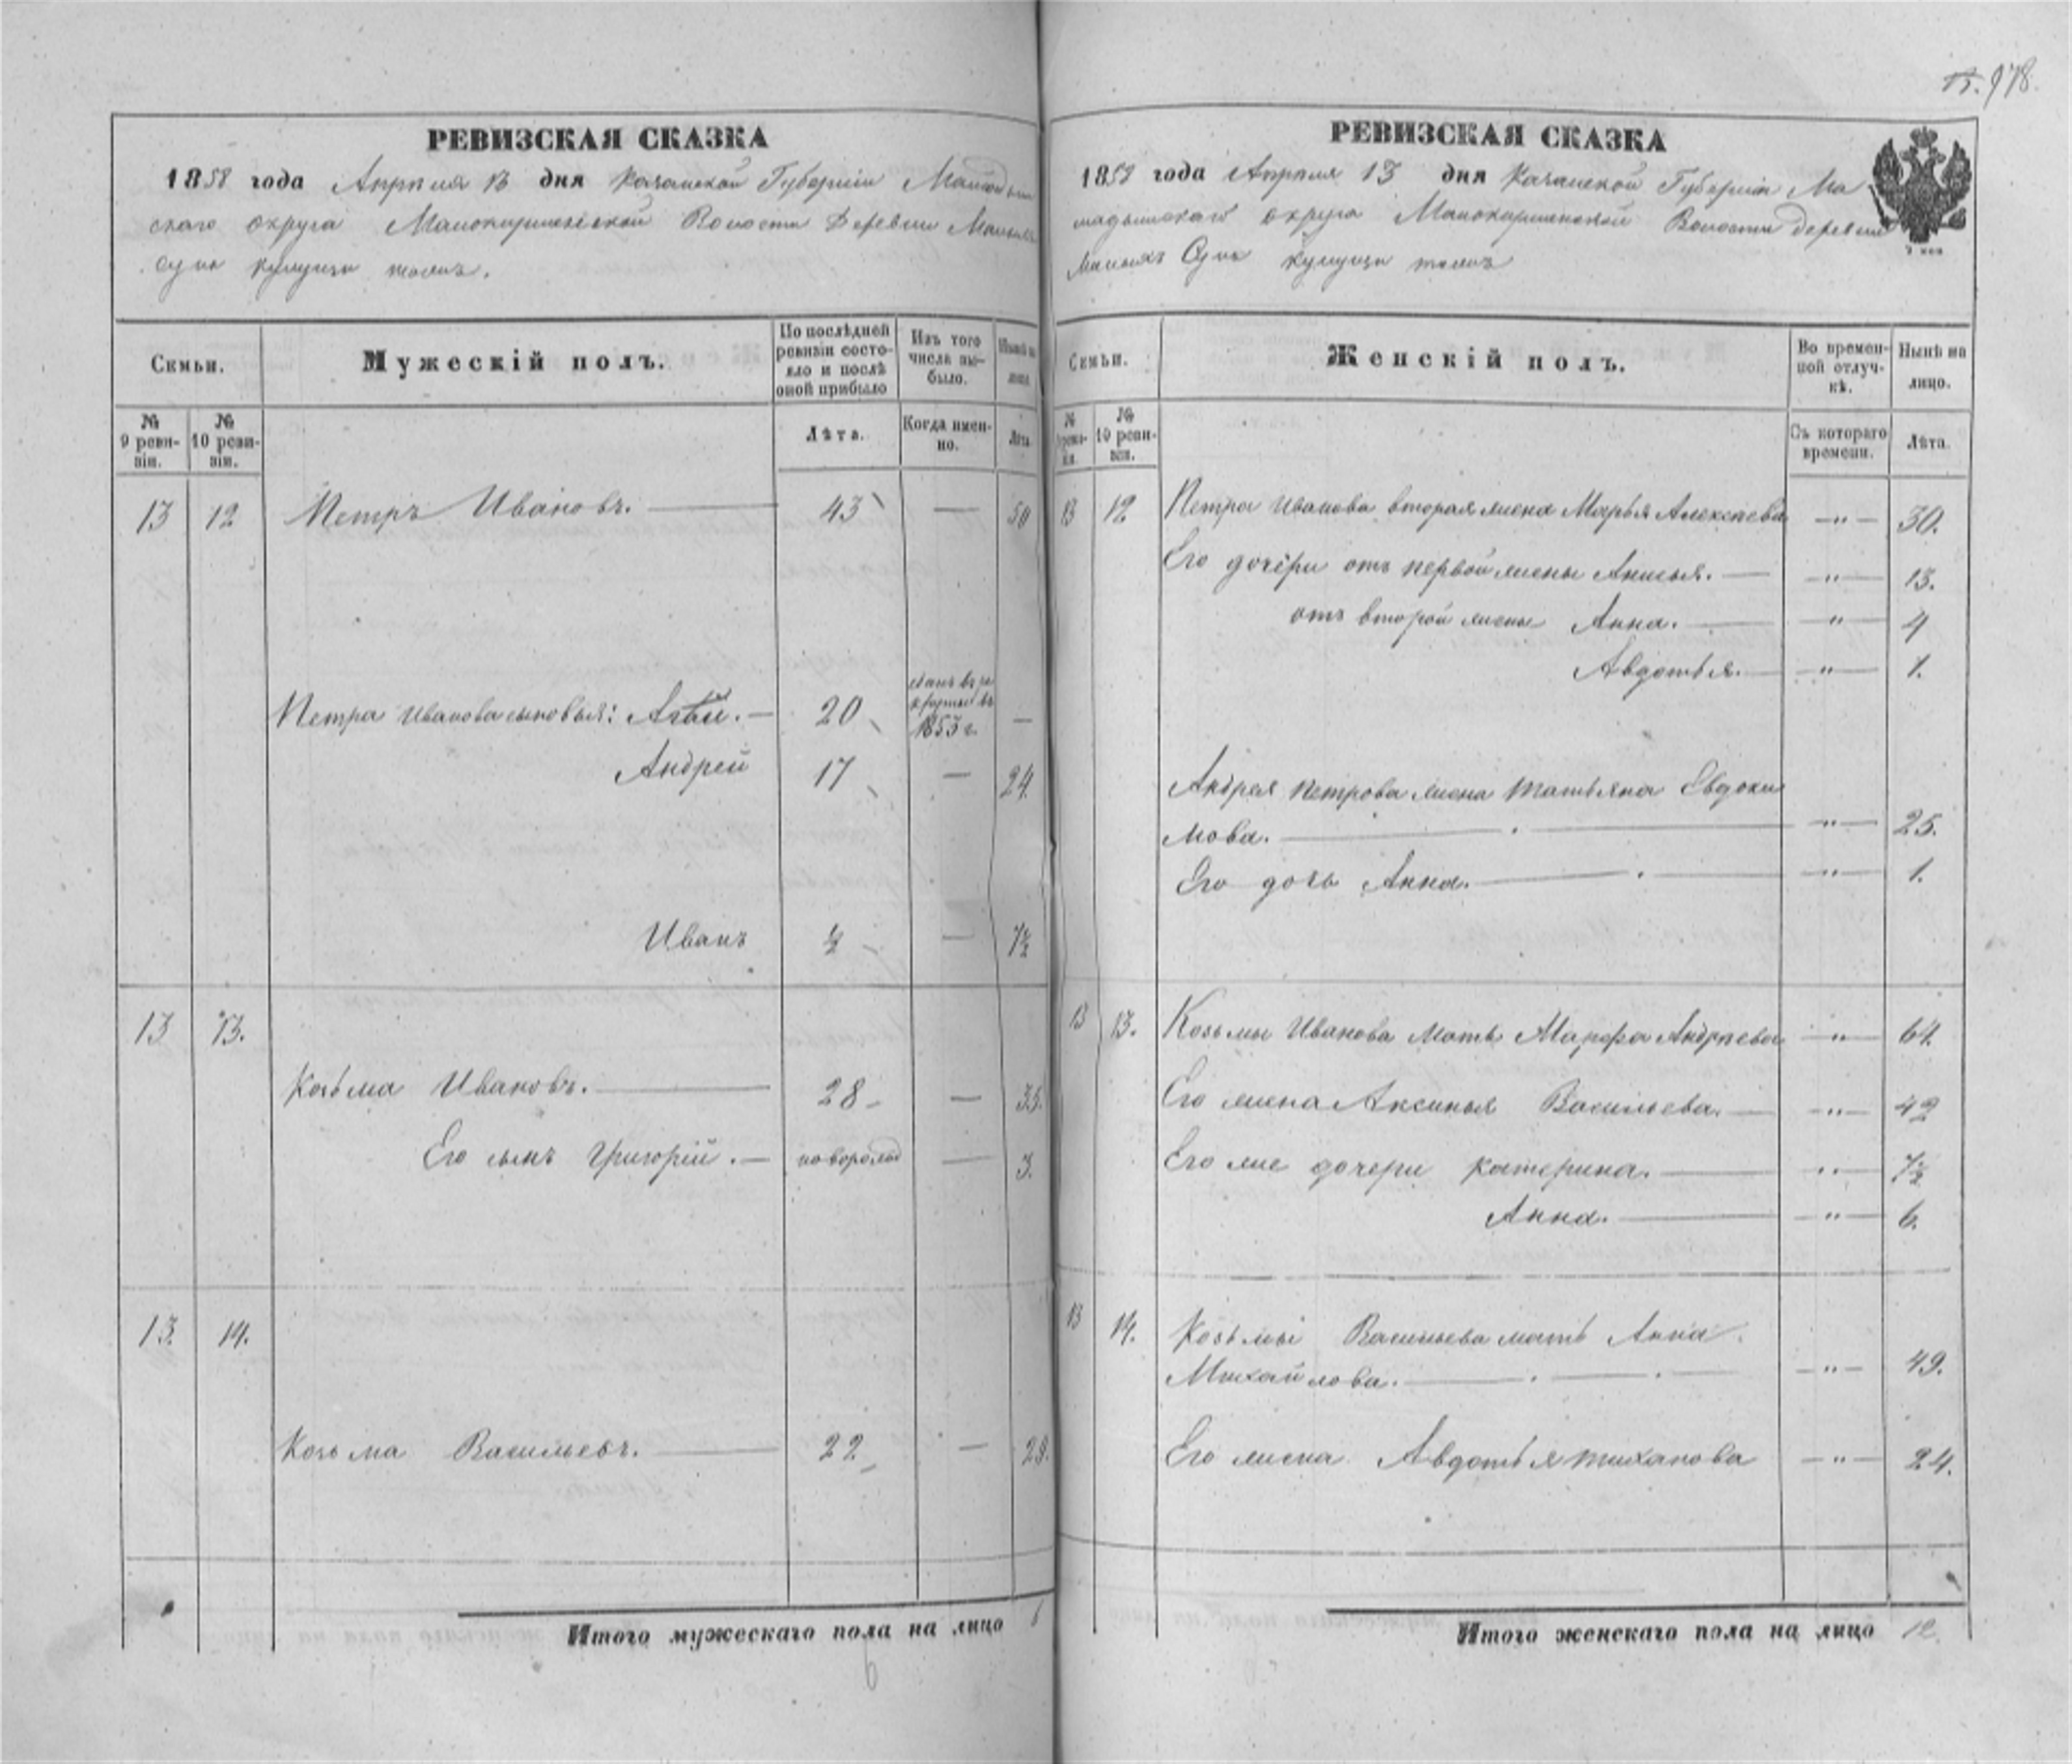 978.
РЕВИЗСКАЯ СКАЗКА
1858 года Апреля 13 дня Казанской Губернии
скаго округа Волости Деревни
РЕВИЗСКАЯ СКАЗКА
1858 года Апреля 13 дня Казанской Губернии Ма
мадышскаго округа Волости деревни
2 коп
Семьи.
Мужескій полъ.
По послѣдней ревизіи состо-
яло и послѣ
оной прибыло
Изъ того
числа вы-
было.
№
9 реви-
зіи.
№
10 реви-
зіи.
Лѣта.
Когда имен-
но.
Лѣта.
13 12 Петръ Ивановъ. 43 — 50
Петра Иванова сыновья: 20 1853 г. —
Андрей 17 — 24
Иванъ ½ — 7½
13 13. Козьма Ивановъ. 28 — 35.
Его сынъ Григорій. новорожд — 3.
13. 14. Козьма Васильевъ. 22 — 29.
Итого мужескаго пола на лицо 6
6
Семьи.
Женскій полъ.
Во времен-
ной отлуч-
кѣ.
Нынѣ на
лицо.
№
10 реви-
зіи.
Съ котораго
времени.
Лѣта.
13 12 Петра Иванова вторая жена Марья Алексеева — " — 30.
Его дочери отъ первой жены Анисья. — " — 13.
отъ второй жены Анна. " — 4
Авдотья. — " — 1.
Андрея Петрова жена Татьяна Евдоки
мова. — " — 25.
Его дочь Анна. — " — 1.
13 13. Козьмы Иванова мать Марфа Андреева — " — 64.
Его жена Аксинья Васильева. — " — 42
Его же дочери Катерина. — " — 7½
Анна. — " — 6.
13 14. Козьмы Васильева мать Анна
Михайлова. — " — 49.
Его жена Авдотья Тиханова — " — 24.
Итого женскаго пола на лицо 12.